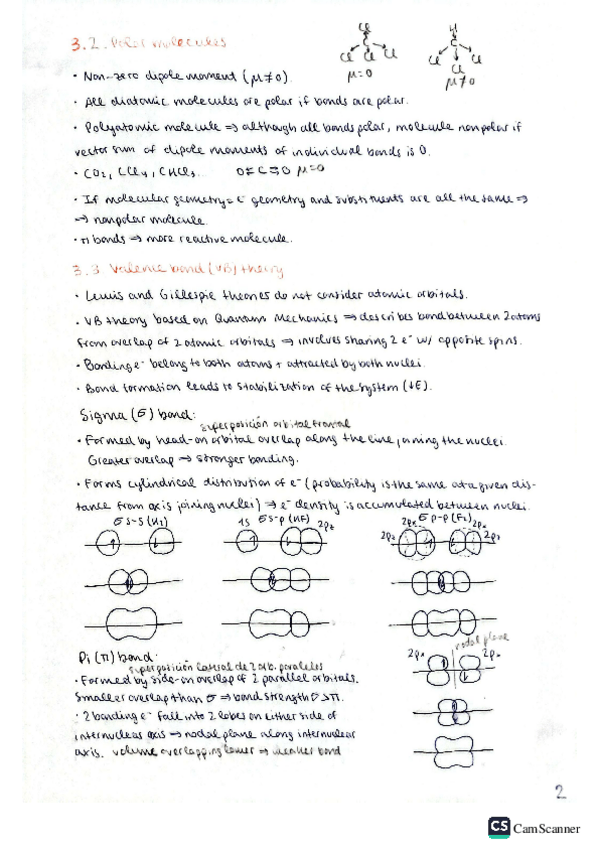 3.2. Polar molecules
Cl
C
Cl Cl Cl
μ=0
H
C
Cl Cl Cl
μ≠0
· Non-zero dipole moment (μ≠0).
· All diatomic molecules are polar if bonds are polar.
· Polyatomic molecule ⇒ although all bonds polar, molecule nonpolar if
vector sum of dipole moments of individual bonds is 0.
· CO2, CCl4, CHCl3. O=C=O μ=0
· If molecular geometry = e⁻ geometry and substituents are all the same ⇒
⇒ nonpolar molecule.
· π bonds ⇒ more reactive molecule.
3.3 Valence bond (VB) theory
· Lewis and Gillespie theories do not consider atomic orbitals.
· VB theory based on Quantum Mechanics ⇒ describes bond between 2 atoms
from overlap of 2 atomic orbitals ⇒ involves sharing 2 e⁻ w/ opposite spins.
· Bonding e⁻ belong to both atoms + attracted by both nuclei.
· Bond formation leads to stabilization of the system (↓E).
Sigma (σ) bond:
superposición orbital frontal
· Formed by head-on orbital overlap along the line joining the nuclei.
Greater overlap ⇒ stronger bonding.
· Forms cylindrical distribution of e⁻ (probability is the same at a given dis-
tance from axis joining nuclei) ⇒ e⁻ density is accumulated between nuclei.
σ s-s (H2)
1s σ s-p (HF) 2pz
2px σ p-p (F2) 2px
2pz 2pz
Pi (π) bond:
superposición lateral de 2 orb. paralelos
· Formed by side-on overlap of 2 parallel orbitals.
Smaller overlap than σ ⇒ bond strength σ>π.
· 2 bonding e⁻ fall into 2 lobes on either side of
internuclear axis ⇒ nodal plane along internuclear
axis. volume overlapping lower ⇒ weaker bond
nodal plane
2px 2px
2
CS CamScanner